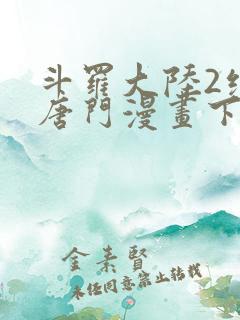 斗羅大陸2
唐門漫畫下
金素賢
未经同意禁止转载